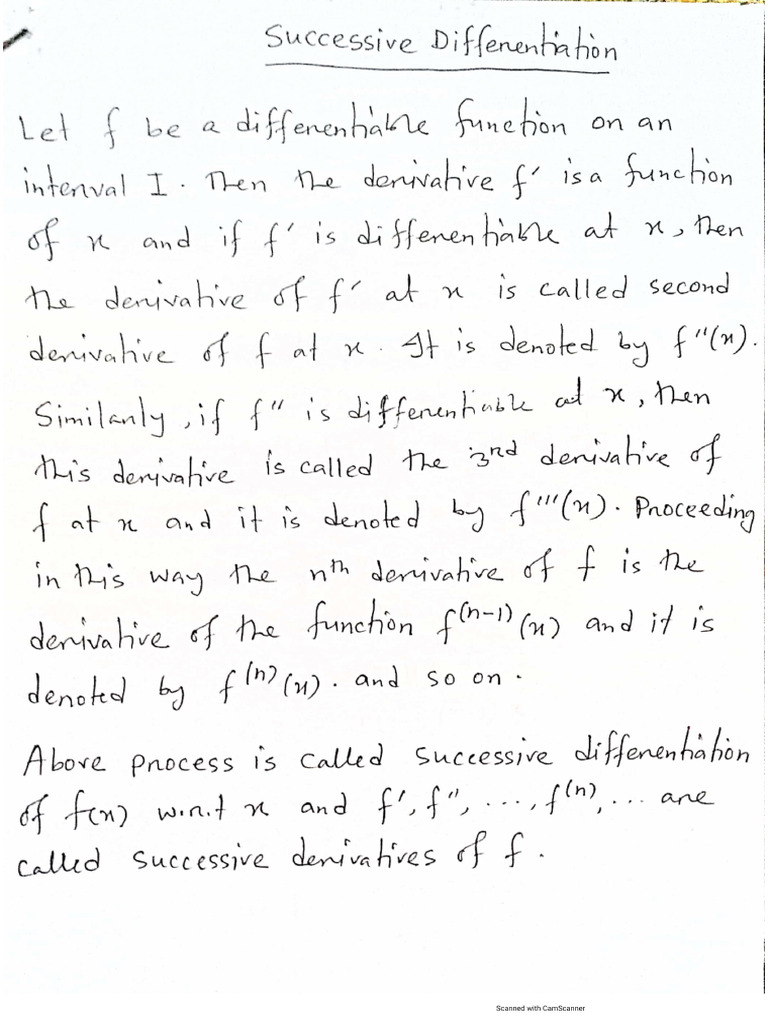 Successive Differentiation
Let f be a differentiable function on an
interval I. Then the derivative f' is a function
of x and if f' is differentiable at x, then
the derivative of f' at x is called second
derivative of f at x. It is denoted by f''(x).
Similarly, if f'' is differentiable at x, then
this derivative is called the 3rd derivative of
f at x and it is denoted by f'''(x). Proceeding
in this way the nth derivative of f is the
derivative of the function f^(n-1)(x) and it is
denoted by f^(n)(x). and so on.
Above process is called successive differentiation
of f(x) w.r.t x and f', f'', ..., f^(n), ... are
called successive derivatives of f.
Scanned with CamScanner